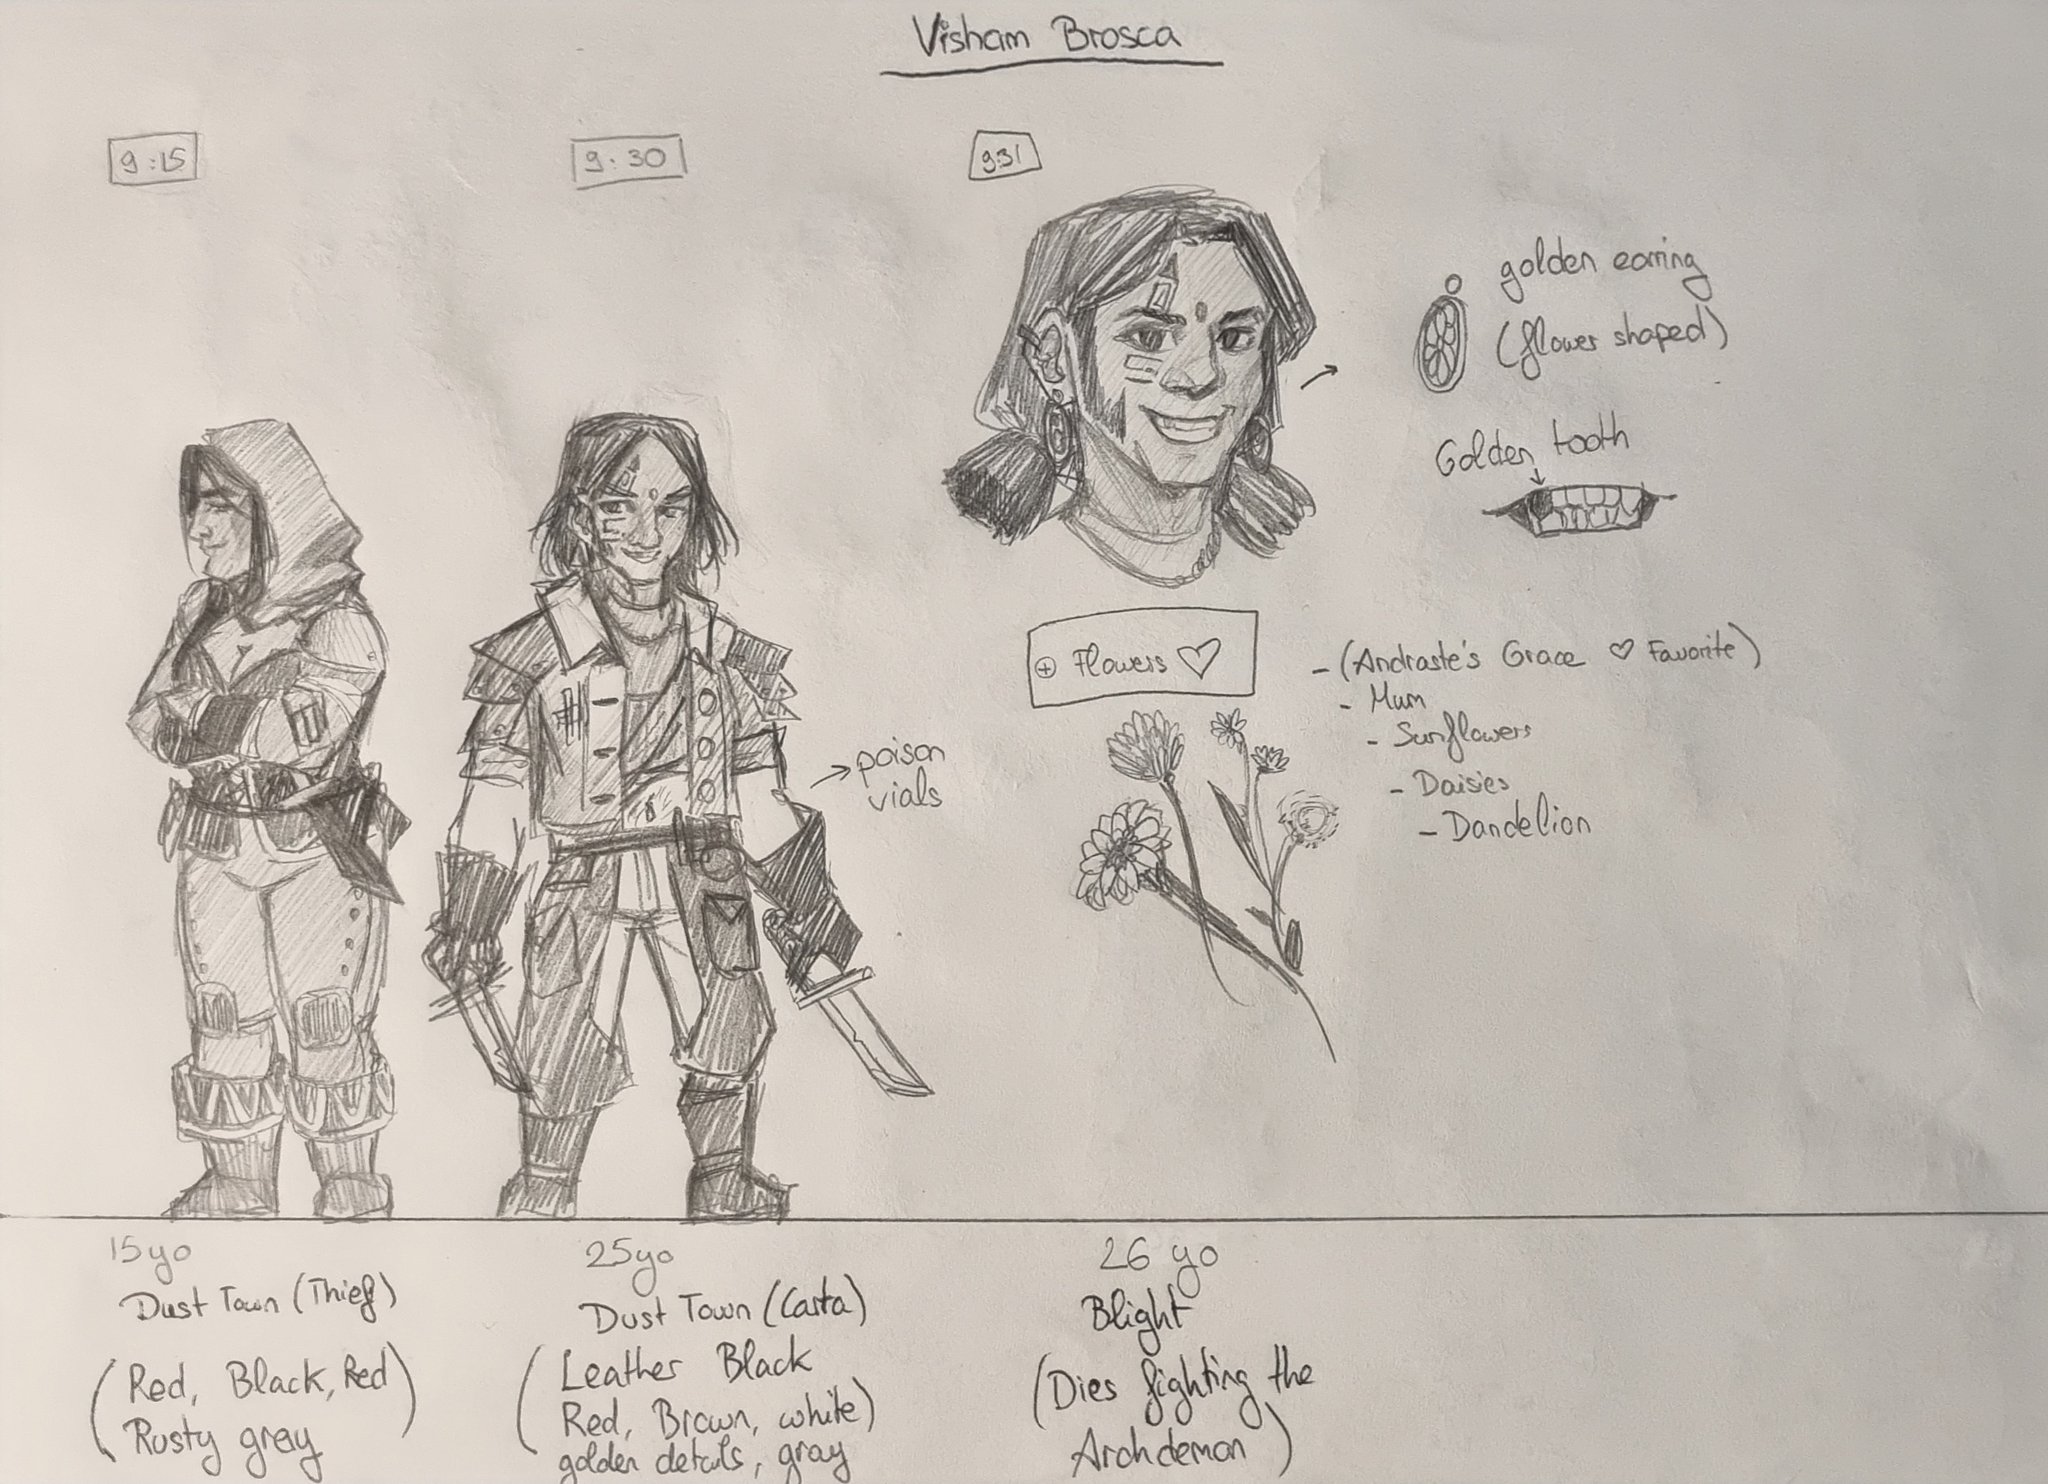 Visham Brosca
9:15
9:30
9:31
golden earring
(flower shaped)
Golden tooth
poison
vials
+ Flowers ♡
- (Andraste's Grace ♡ Favorite)
- Mum
- Sunflowers
- Daisies
- Dandelion
15yo
Dust Town (Thief)
(Red, Black, Red
Rusty gray)
25yo
Dust Town (Carta)
(Leather Black
Red, Brown, white)
golden details, gray
26 yo
Blight
(Dies fighting the
Archdemon)